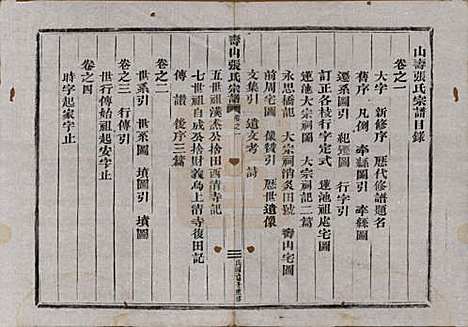 山壽張氏宗譜目錄
卷之一
大字 新修序 歷代修譜題名
舊序 凡例 奉縣圖引 奉縣圖
遷系圖引 遷系圖 行字引
訂正各枝行字定式 蓮池祖處宅圖
蓮池大宗圖 大宗祠記二篇
永思橋記 大宗祠消炎田號 壽山宅圖
前周宅圖 像贊引 歷世遺像
文集引 遺文考 詩
壽山張氏宗譜 卷之一
五世祖漢杰公捨田西清寺記
七世祖自成公捨財義烏上清寺復田記
傳 譜 後序三篇
卷之二
世系引 世系圖 墳圖引 墳圖
卷之三 行傳引
世行傳始祖起安字止
卷之四
時字起家字止